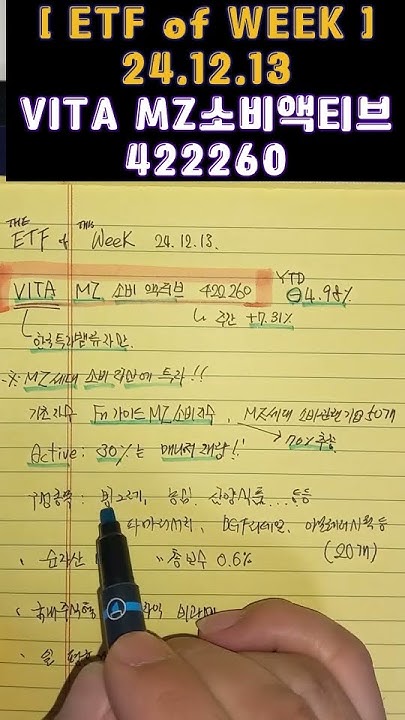 [ ETF of WEEK ]
24.12.13
VITA MZ소비액티브
422260
THE ETF of THIS Week 24.12.13.
VITA MZ 소비 액티브 422260
YTD ⊖4.98%
↳ 주간 +7.31%
한국투자밸류자산.
※ MZ세대 소비라인에 투자!!
기초지수 Fn가이드 MZ소비지수, MZ세대 소비관련기업 50개
70% 추종
Active: 30%는 매니저재량!!
구성종목 : 빙그레, 농심, 삼양식품... 등등
BGF리테일,
(20개)
순자산
총보수 0.6%
국내주식형
일 평균